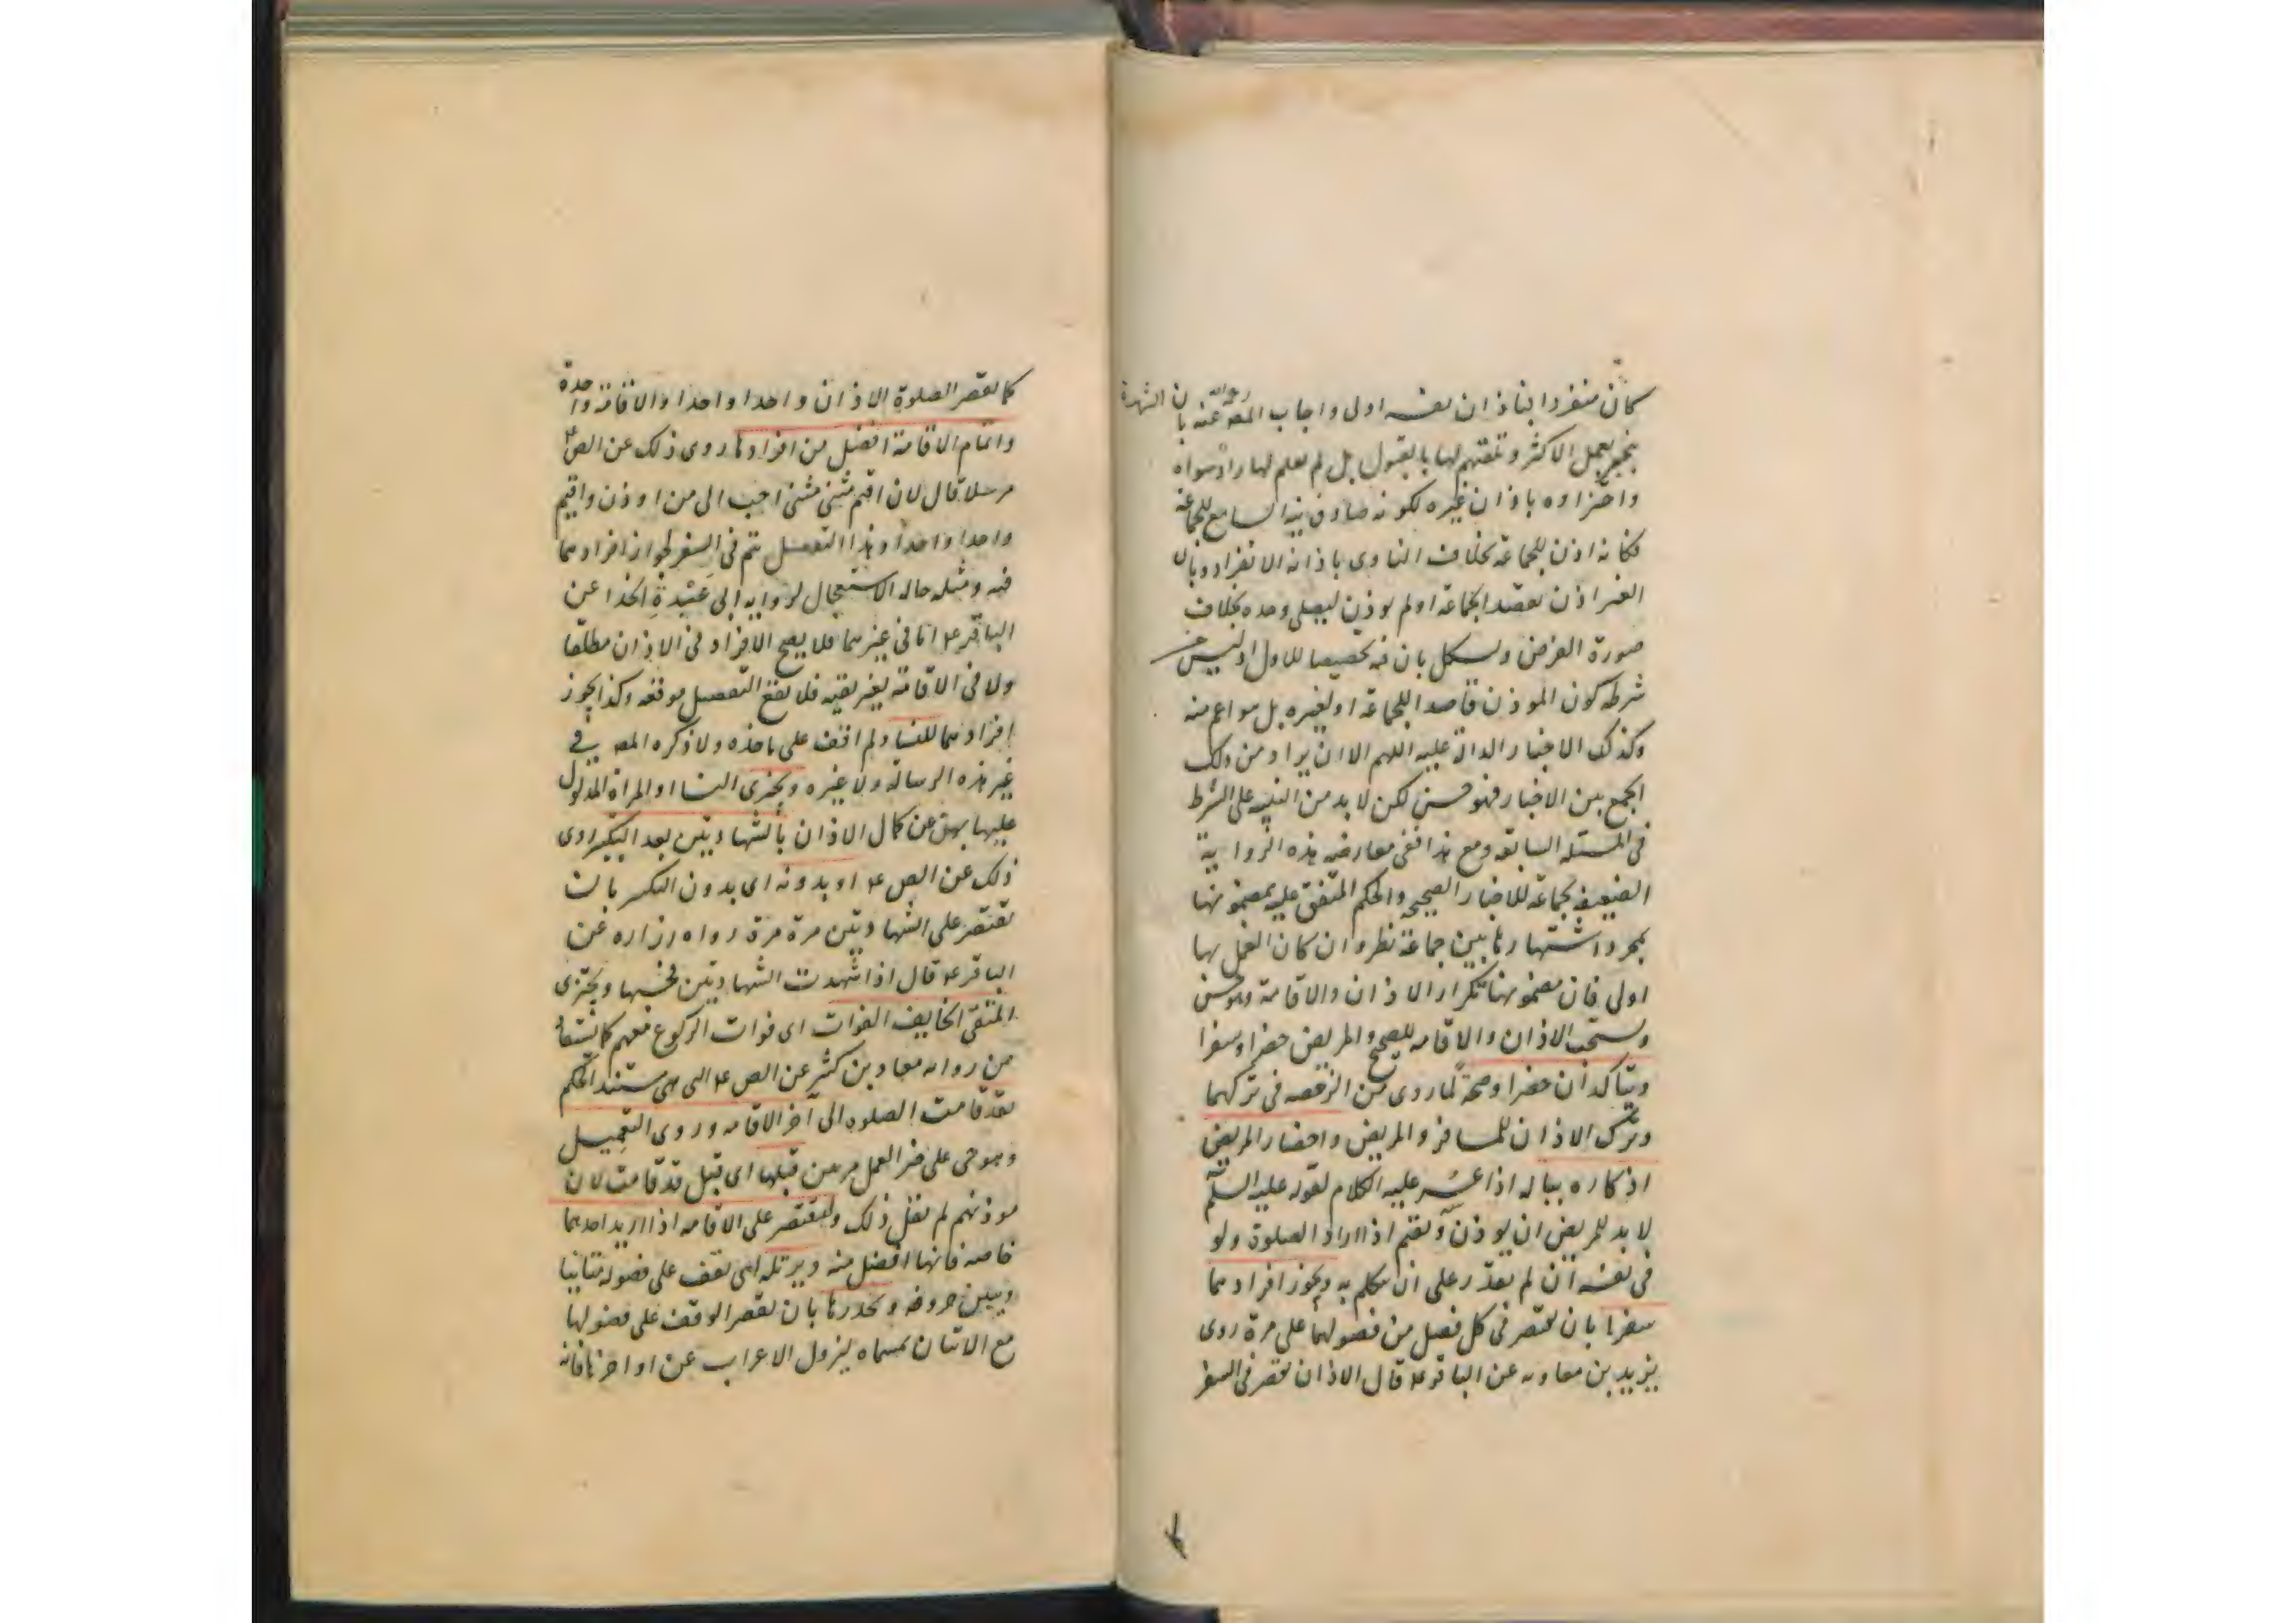 كان منفردا فباذان نفسه اولى واجاب المصه رحمه الله عنه بان الشهرة
تنجبر بعمل الاكثر وتلقيهم لها بالقبول بل لم نعلم لها رادا سواه
واجتزاوه باذان غيره لكونه صادف نية السامع للجماعة
فكانه اذن للجماعة بخلاف الناوى باذانه الانفراد وبان
الغير اذن بقصد الجماعة او لم يوذن ليصلى وحده بخلاف
صورة الفرض ويشكل بان فيه تخصيصا للاول اذ ليس من
شرطه كون الموذن قاصدا للجماعة او لغيره بل هو اعم منه
وكذلك الاخبار الدالة عليه اللهم الا ان يراد من ذلك
الجمع بين الاخبار فهو حسن لكن لا بد من التنبيه على الشرط
فى المسئله السابقه ومع هذا ففى معارضه هذه الرواية
الضعيفه بجماعة للاخبار الصحيحه والحكم المتفق عليه بمضمونها
بمجرد اشتهارها بين جماعة نظر وان كان العمل بها
اولى فان مضمونها تكرار الاذان والاقامة وهو حسن
ويستحب الاذان والاقامه للصحيح والمريض حضرا وسفرا
ويتاكدان حضرا وصحة لما روى من الرخصه فى تركهما
وترك الاذان للمسافر والمريض واحضار المريض
اذكاره بباله اذا عسر عليه الكلام لقوله عليه السلم
لا بد للمريض ان يوذن ويقيم اذا اراد الصلوة ولو
فى نفسه ان لم يقدر على ان يتكلم به ويجوز افرادهما
سفرا بان يقتصر فى كل فصل من فصولهما على مرة روى
يزيد بن معاويه عن الباقر ع قال الاذان يقصر فى السفر
كما تقصر الصلوة الاذان واحدا واحدا والاقامة واحدة
واتمام الاقامة افضل من افرادها روى ذلك عن الص ع
مرسلا قال لان اقيم مثنى مثنى احب الى من اوذن واقيم
واحدا واحدا وهذا التفصيل يتم فى السفر لجواز افرادهما
فيه ومثله حاله الاستعجال لروايه ابى عبيدة الحذا عن
الباقر ع اما فى غيرهما فلا يصح الافراد فى الاذان مطلقا
ولا فى الاقامة بغير تقيه فلا يقع التفصيل موقعه وكذا يجوز
افرادهما للنسا ولم اقف على ماخذه ولا ذكره المصه فى
غير هذه الرسالة ولا غيره ويجزى النسا او المراة المدلول
عليها بهن عن كمال الاذان بالشهادتين بعد التكبير روى
ذلك عن الص ع او بدونه اى بدون التكبير بان
تقتصر على الشهادتين مرة مرة رواه زراره عن
الباقر ع قال اذا شهدت الشهادتين فحسبها ويجتزى
المتقى الخايف الفوات اى فوات الركوع معهم كما يستفاد
من روايه معاد بن كثير عن الص ع التى هى مستند الحكم
بقد قامت الصلوه الى آخر الاقامه وروى التعجيل
وهو حى على خير العمل مرتين قبلها اى قبل قد قامت لان
موذنهم لم يقل ذلك وليقتصر على الاقامه اذا اريد احدهما
خاصه فانها افضل منه ويرتله اى يقف على فصوله متانيا
ويبين حروفه ويحدرها بان يقصر الوقف على فصولها
مع الاتيان بمسماه ليزول الاعراب عن اواخرها فانه